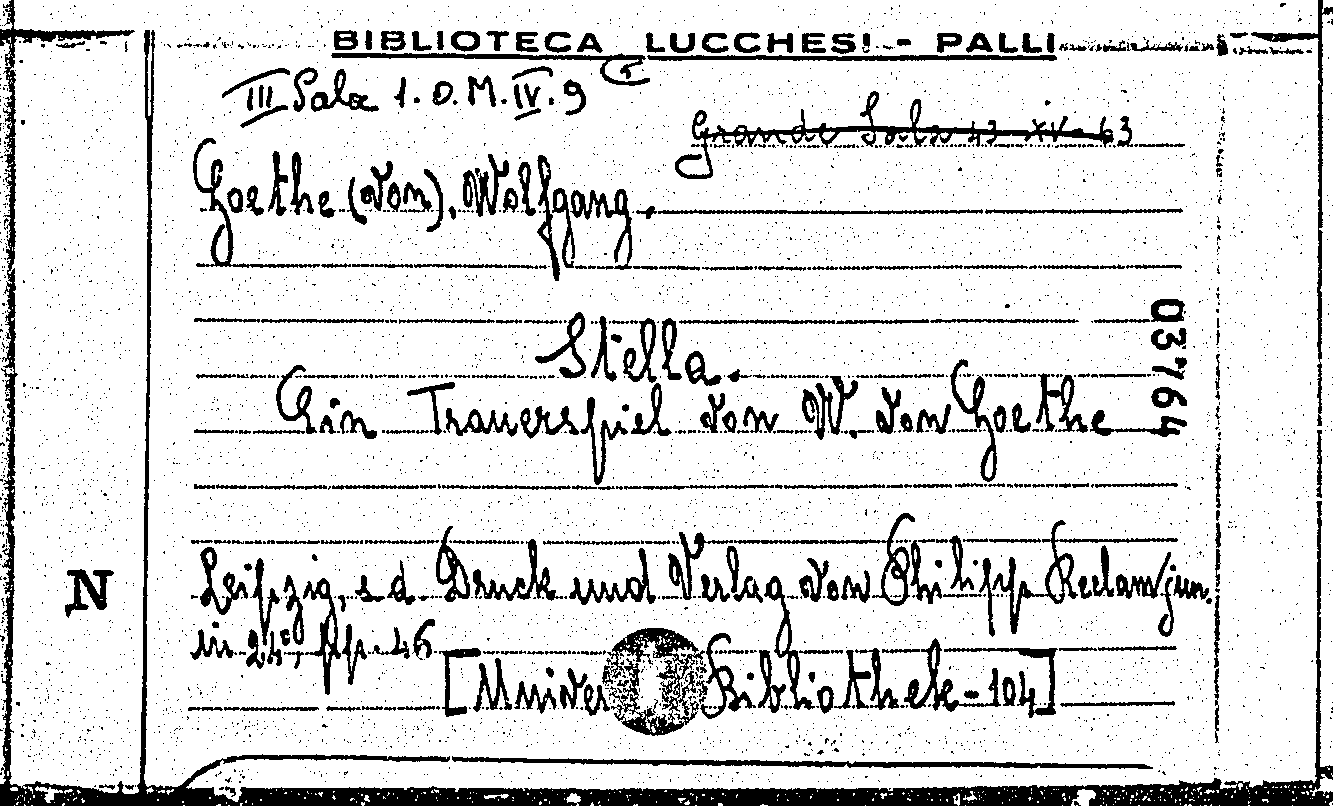 BIBLIOTECA LUCCHESI - PALLI
III Sala 1.O.M.IV.9 (5
Grande Sala 43 XV-63
Goethe (von), Wolfgang.
Stella.
Ein Trauerspiel von W. von Goethe
03764
Leipzig, s.d. Druck und Verlag von Philipp Reclam jun.
N
in 24°, pp. 46
[Univer Bibliothek-104]